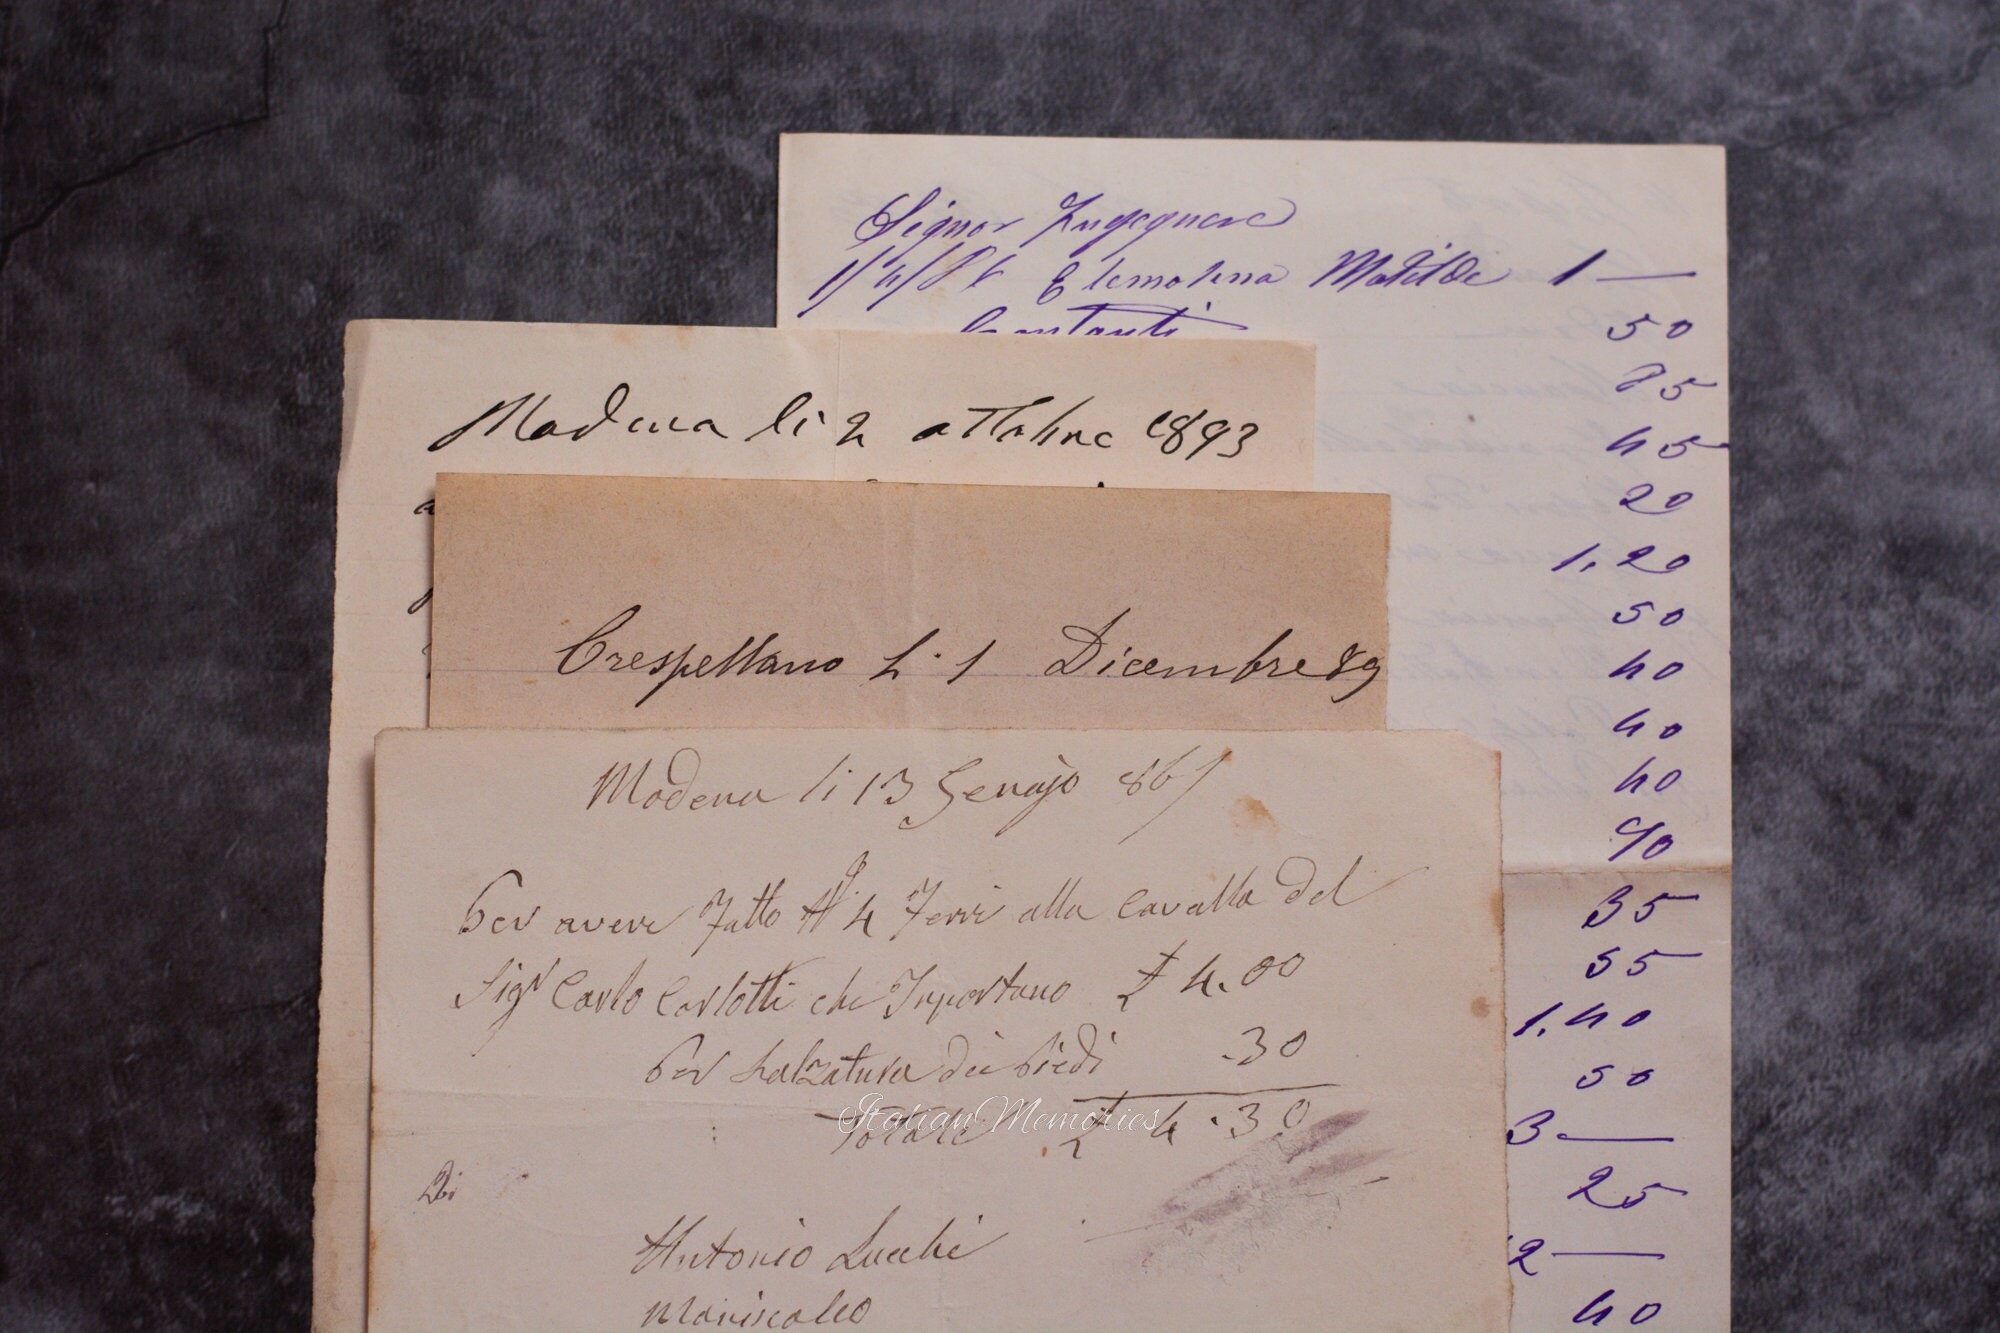 Signor Ingegnere
1/4/86 Elemosina Matilde 1 —
Contanti 50
85
45
20
1,20
50
40
40
40
90
35
55
1.40
50
3. —
25
2 —
40
Modena li 2 ottobre 1893
Crespellano Li 1 Dicembre 89
Modena li 13 Genajo 867
Per avere Fatto N 4 Ferri alla Cavalla del
Sigr Carlo Carlotti che Inportano £ 4.00
Per halzatura dei Piedi .30
Totale £ 4.30
Antonio Lucchi
Maniscalco
Italian Memories